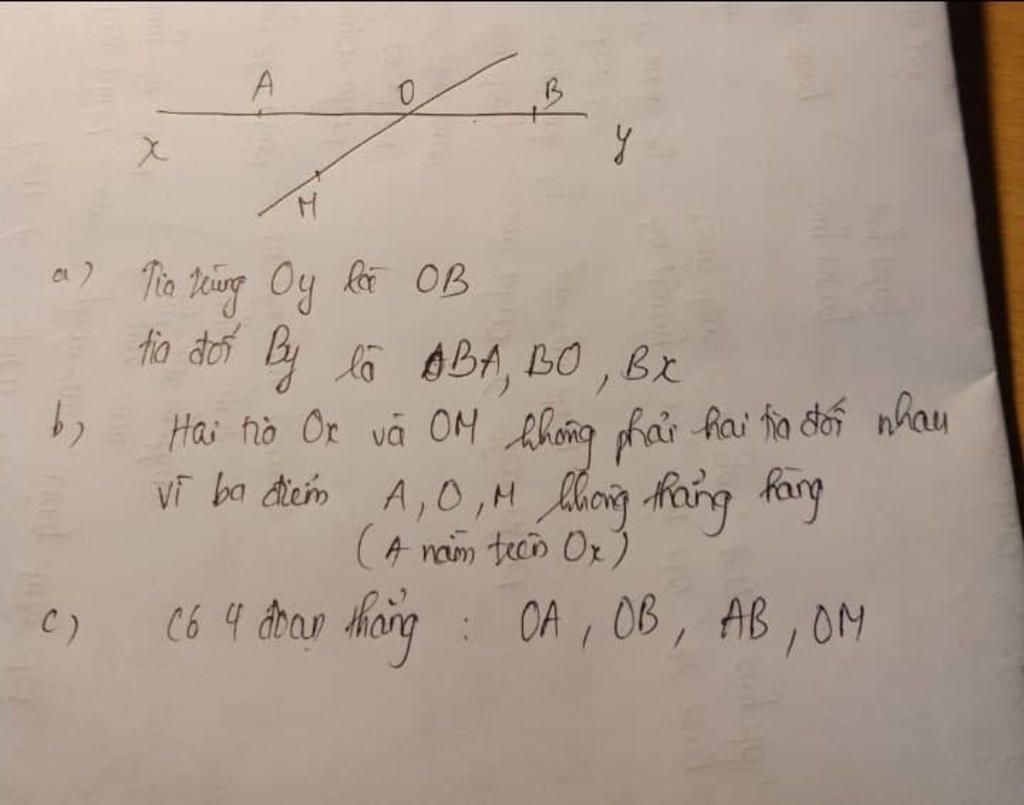 A O B
x y
M
a) Tia trùng Oy là OB
tia đối By là BA, BO, Bx
b) Hai tia Ox và OM không phải hai tia đối nhau
vì ba điểm A, O, M không thẳng hàng
(A nằm trên Ox)
c) Có 4 đoạn thẳng : OA, OB, AB, OM